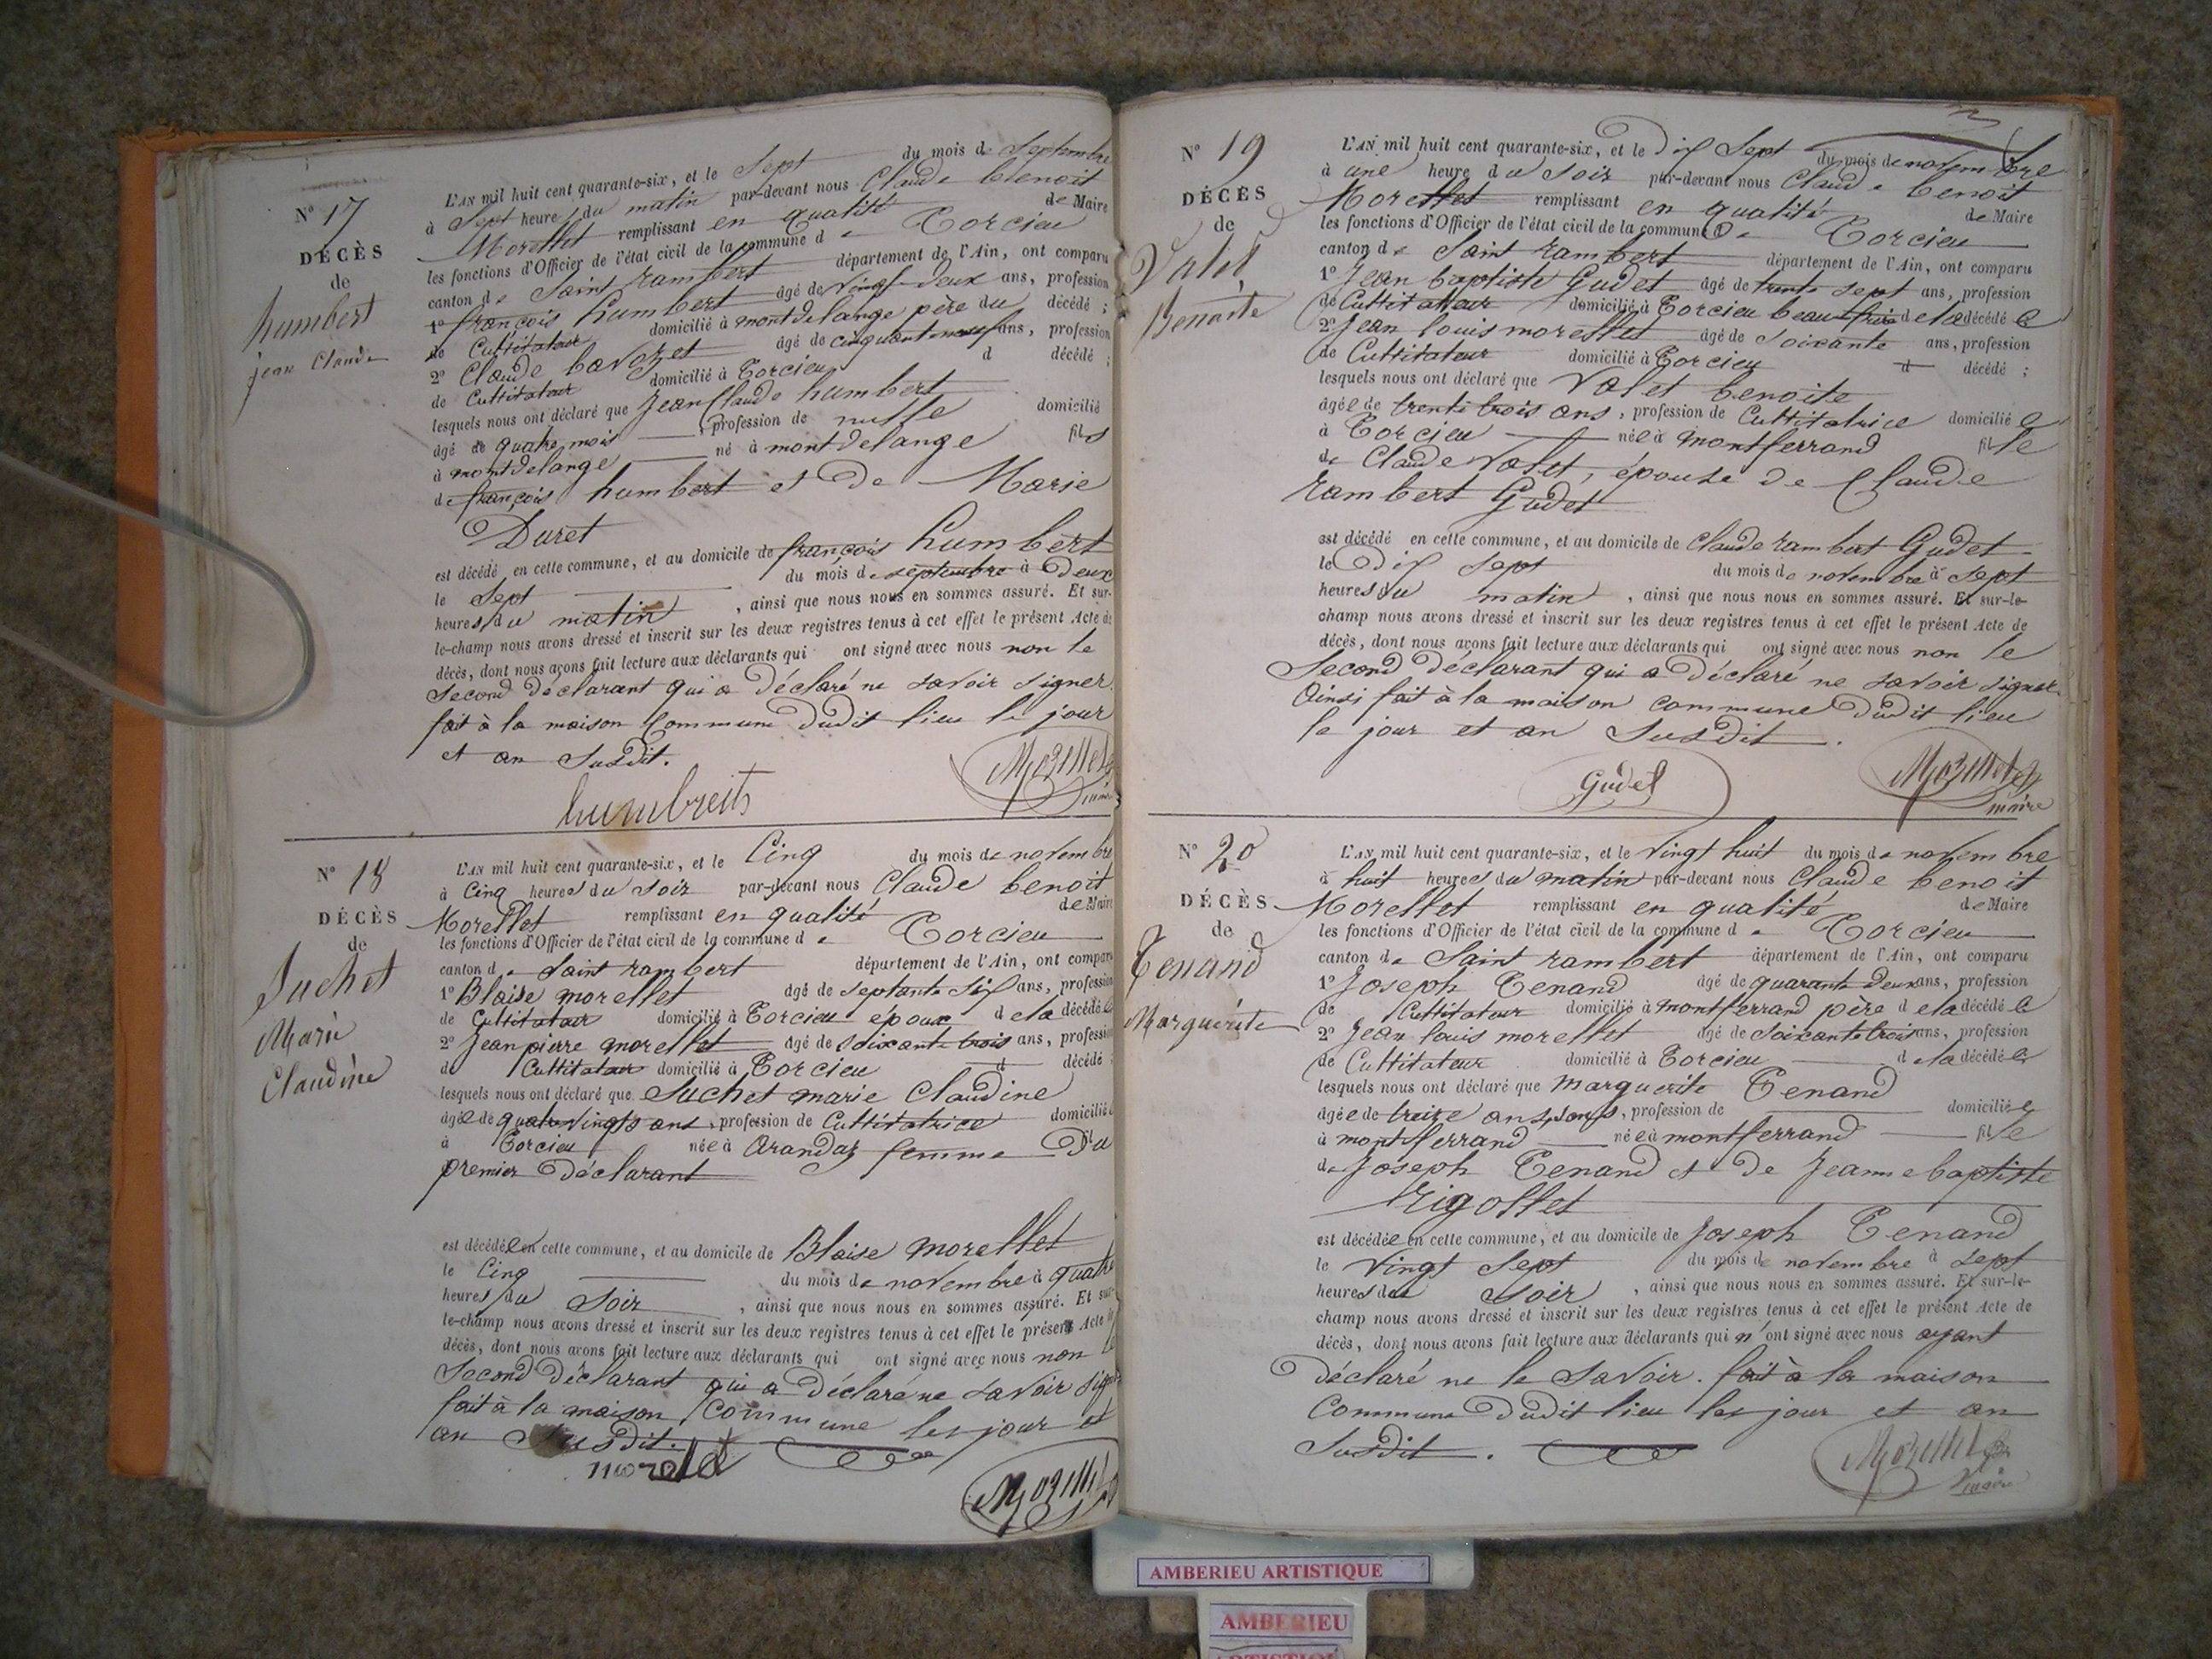 N° 17
DÉCÈS
de
humbert
jean Claude
L'AN mil huit cent quarante-six, et le Sept du mois de Septembre
à Sept heures du matin par-devant nous Claude benoit
Morellet remplissant en qualité de Maire
les fonctions d'Officier de l'état civil de la commune de Torcieu
canton de Saint rambert département de l'Ain, ont comparu
1° françois humbert âgé de vingt-deux ans, profession
de Cultivateur domicilié à montdelange père du décédé ;
2° Claude bavozet âgé de cinquante neuf ans, profession
de Cultivateur domicilié à Torcieu d décédé ;
lesquels nous ont déclaré que Jean Claude humbert
âgé de quatre mois , profession de nulle domicilié
à montdelange né à montdelange fils
de françois humbert et de Marie
Duret
est décédé en cette commune, et au domicile de françois humbert
le sept du mois de septembre à Deux
heures du matin , ainsi que nous nous en sommes assuré. Et sur-
le-champ nous avons dressé et inscrit sur les deux registres tenus à cet effet le présent Acte de
décès, dont nous avons fait lecture aux déclarants qui ont signé avec nous non le
Second déclarant qui a déclaré ne savoir signer
fait à la maison Commune dudit lieu le jour
et an Susdit.
humbreits
Morellet
maire
N° 18
DÉCÈS
de
Suchet
Marie
Claudine
L'AN mil huit cent quarante-six, et le Cinq du mois de novembre
à Cinq heures du soir par-devant nous Claude benoit
Morellet remplissant en qualité de Maire
les fonctions d'Officier de l'état civil de la commune de Torcieu
canton de Saint rambert département de l'Ain, ont comparu
1° Blaise morellet âgé de septante six ans, profession
de Cultivateur domicilié à Torcieu époux de la décédée
2° Jean pierre morellet âgé de soixante trois ans, profession
de Cultivateur domicilié à Torcieu d décédé ;
lesquels nous ont déclaré que Suchet marie Claudine
âgée de quatre vingts ans , profession de Cultivatrice domiciliée
à Torcieu née à Arandaz femme Du
premier déclarant
est décédée en cette commune, et au domicile de Blaise morellet
le Cinq du mois de novembre à quatre
heures du Soir , ainsi que nous nous en sommes assuré. Et sur-
le-champ nous avons dressé et inscrit sur les deux registres tenus à cet effet le présent Acte de
décès, dont nous avons fait lecture aux déclarants qui ont signé avec nous non le
Second Déclarant qui a Déclaré ne savoir signer
fait à la maison Commune les jour et
an Susdit.
morelet
Morellet
N° 19
DÉCÈS
de
Valet
Benoite
L'AN mil huit cent quarante-six, et le Dix Sept du mois de novembre
à une heure du Soir par-devant nous Claude benoit
Morellet remplissant en qualité de Maire
les fonctions d'Officier de l'état civil de la commune de Torcieu
canton de Saint rambert département de l'Ain, ont comparu
1° Jean baptiste Gudet âgé de trente sept ans, profession
de Cultivateur domicilié à Torcieu beau frère de la décédée
2° Jean louis morellet âgé de soixante ans, profession
de Cultivateur domicilié à Torcieu d décédé ;
lesquels nous ont déclaré que Valet benoite
âgée de trente trois ans , profession de Cultivatrice domiciliée
à Torcieu née à montferrand fille
de Claude Valet, épouse de Claude
rambert Gudet
est décédé en cette commune, et au domicile de Claude rambert Gudet
le Dix sept du mois de novembre à sept
heures du matin , ainsi que nous nous en sommes assuré. Et sur-le-
champ nous avons dressé et inscrit sur les deux registres tenus à cet effet le présent Acte de
décès, dont nous avons fait lecture aux déclarants qui ont signé avec nous non le
Second déclarant qui a Déclaré ne savoir signer
Ainsi fait à la maison commune dudit lieu
le jour et an Susdit.
Gudet
Morellet
maire
N° 20
DÉCÈS
de
Tenand
Marguerite
L'AN mil huit cent quarante-six, et le vingt huit du mois de novembre
à huit heures du matin par-devant nous Claude benoit
Morellet remplissant en qualité de Maire
les fonctions d'Officier de l'état civil de la commune de Torcieu
canton de Saint rambert département de l'Ain, ont comparu
1° Joseph Tenand âgé de quarante deux ans, profession
de Cultivateur domicilié à montferrand père de la décédée
2° Jean louis morellet âgé de soixante trois ans, profession
de Cultivateur domicilié à Torcieu de la décédée
lesquels nous ont déclaré que marguerite Tenand
âgée de treize ans , profession de domiciliée
à montferrand née à montferrand fille
de Joseph Tenand et de Jeanne baptiste
rigollet
est décédée en cette commune, et au domicile de Joseph Tenand
le vingt sept du mois de novembre à sept
heures du soir , ainsi que nous nous en sommes assuré. Et sur-le-
champ nous avons dressé et inscrit sur les deux registres tenus à cet effet le présent Acte de
décès, dont nous avons fait lecture aux déclarants qui n'ont signé avec nous ayant
Déclaré ne le Savoir. fait à la maison
Commune dudit lieu les jour et an
Susdit.
Morellet
maire
AMBERIEU ARTISTIQUE
AMBERIEU
ARTISTIQUE